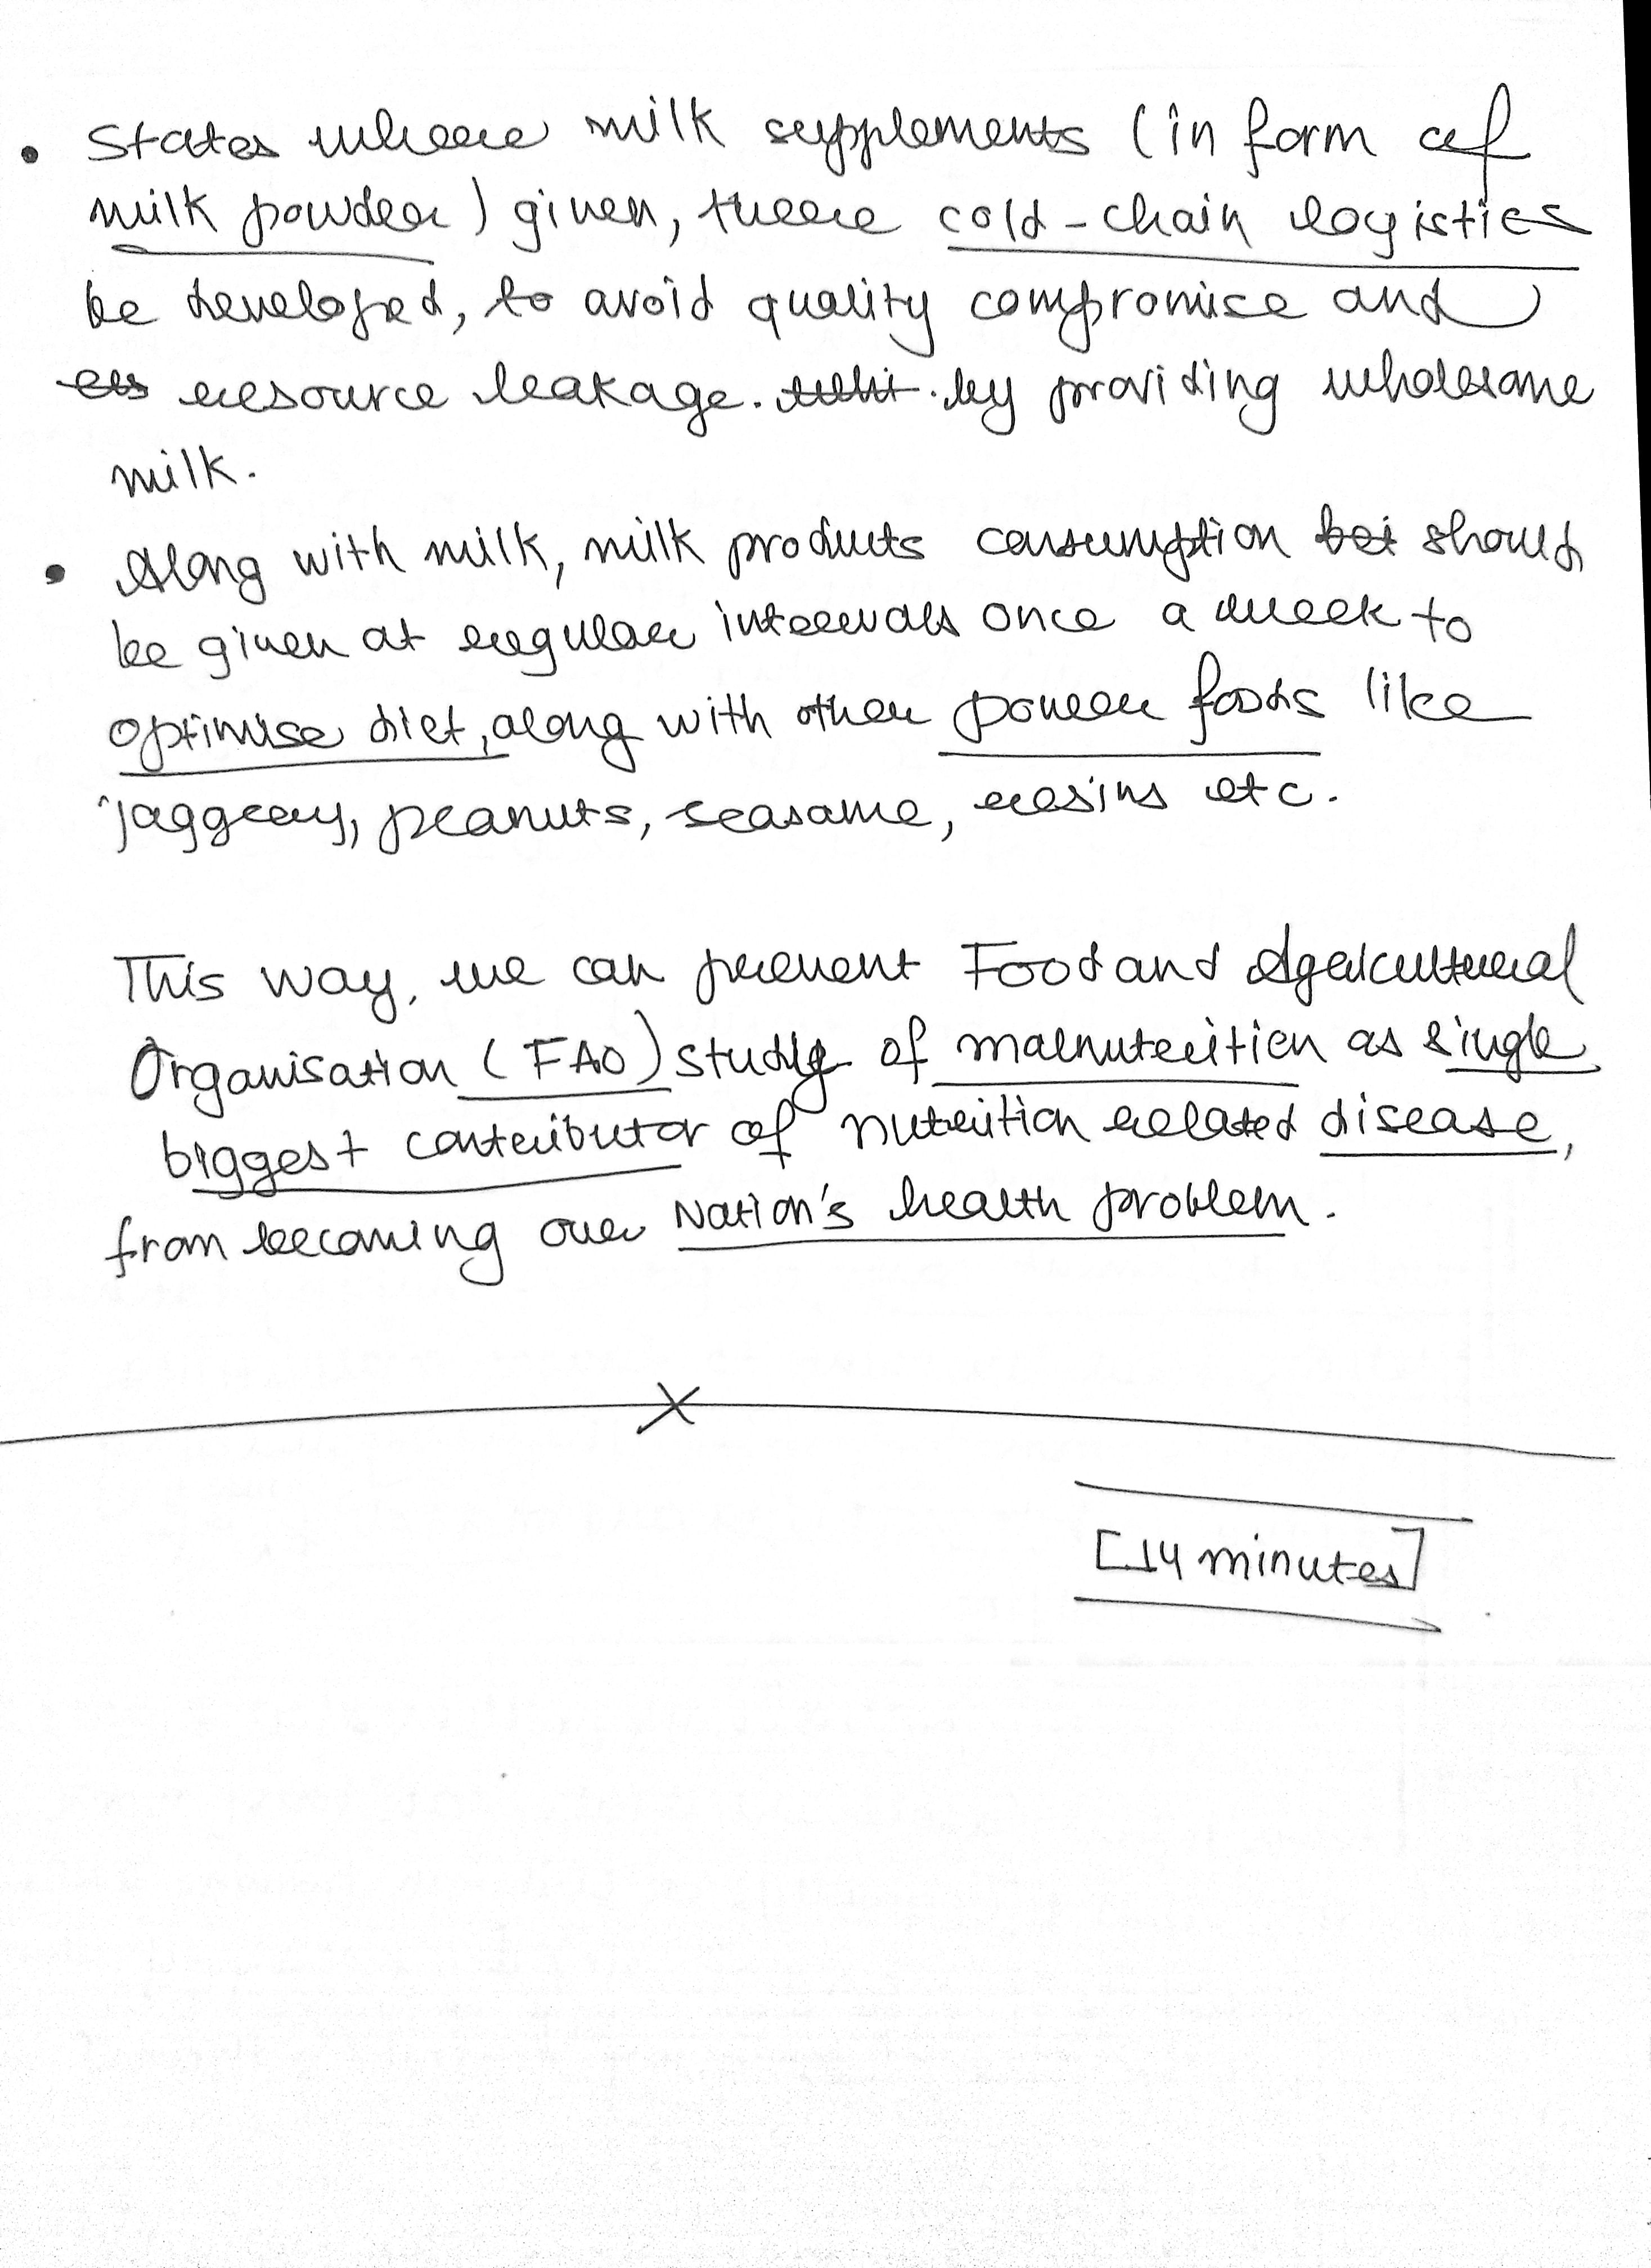 • States where milk supplements (in form of
milk powder) given, there cold-chain logistics
be developed, to avoid quality compromise and
resource leakage. by providing wholesome
milk.
• Along with milk, milk products consumption should
be given at regular intervals once a week to
optimise diet, along with other power foods like
jaggery, peanuts, seasame, resins etc.
This way, we can prevent Food and Agricultural
Organisation (FAO) study of malnutrition as single
biggest contributor of nutrition related disease,
from becoming our Nation's health problem.
[14 minutes]